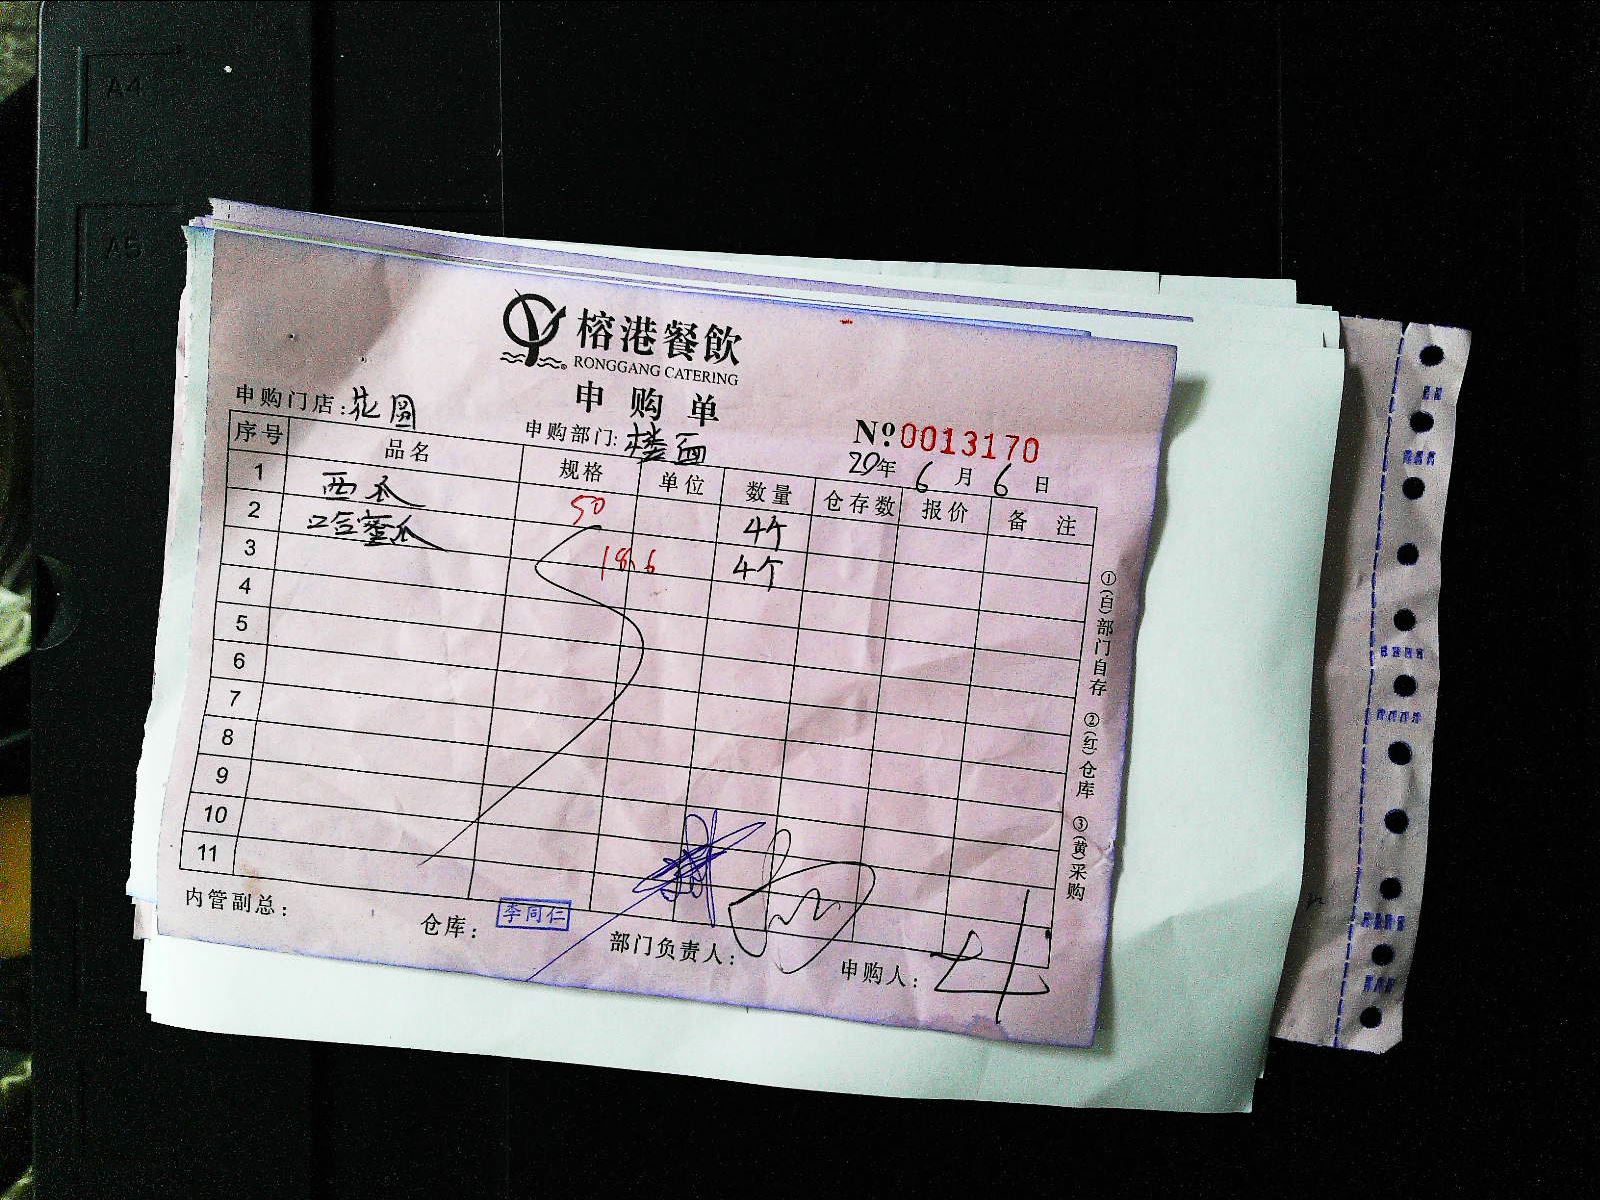 A4
A5
榕港餐飲
RONGGANG CATERING
申购单
申购门店:花园
申购部门:楼面
Nº0013170
20年6月6日
序号 品名 规格 单位 数量 仓存数 报价 备注
1 西瓜 50 4个
2 哈密瓜 18.6 4个
3
4
5
6
7
8
9
10
11
①(白)部门自存 ②(红)仓库 ③(黄)采购
内管副总:
仓库: 李同仁
部门负责人:
申购人: